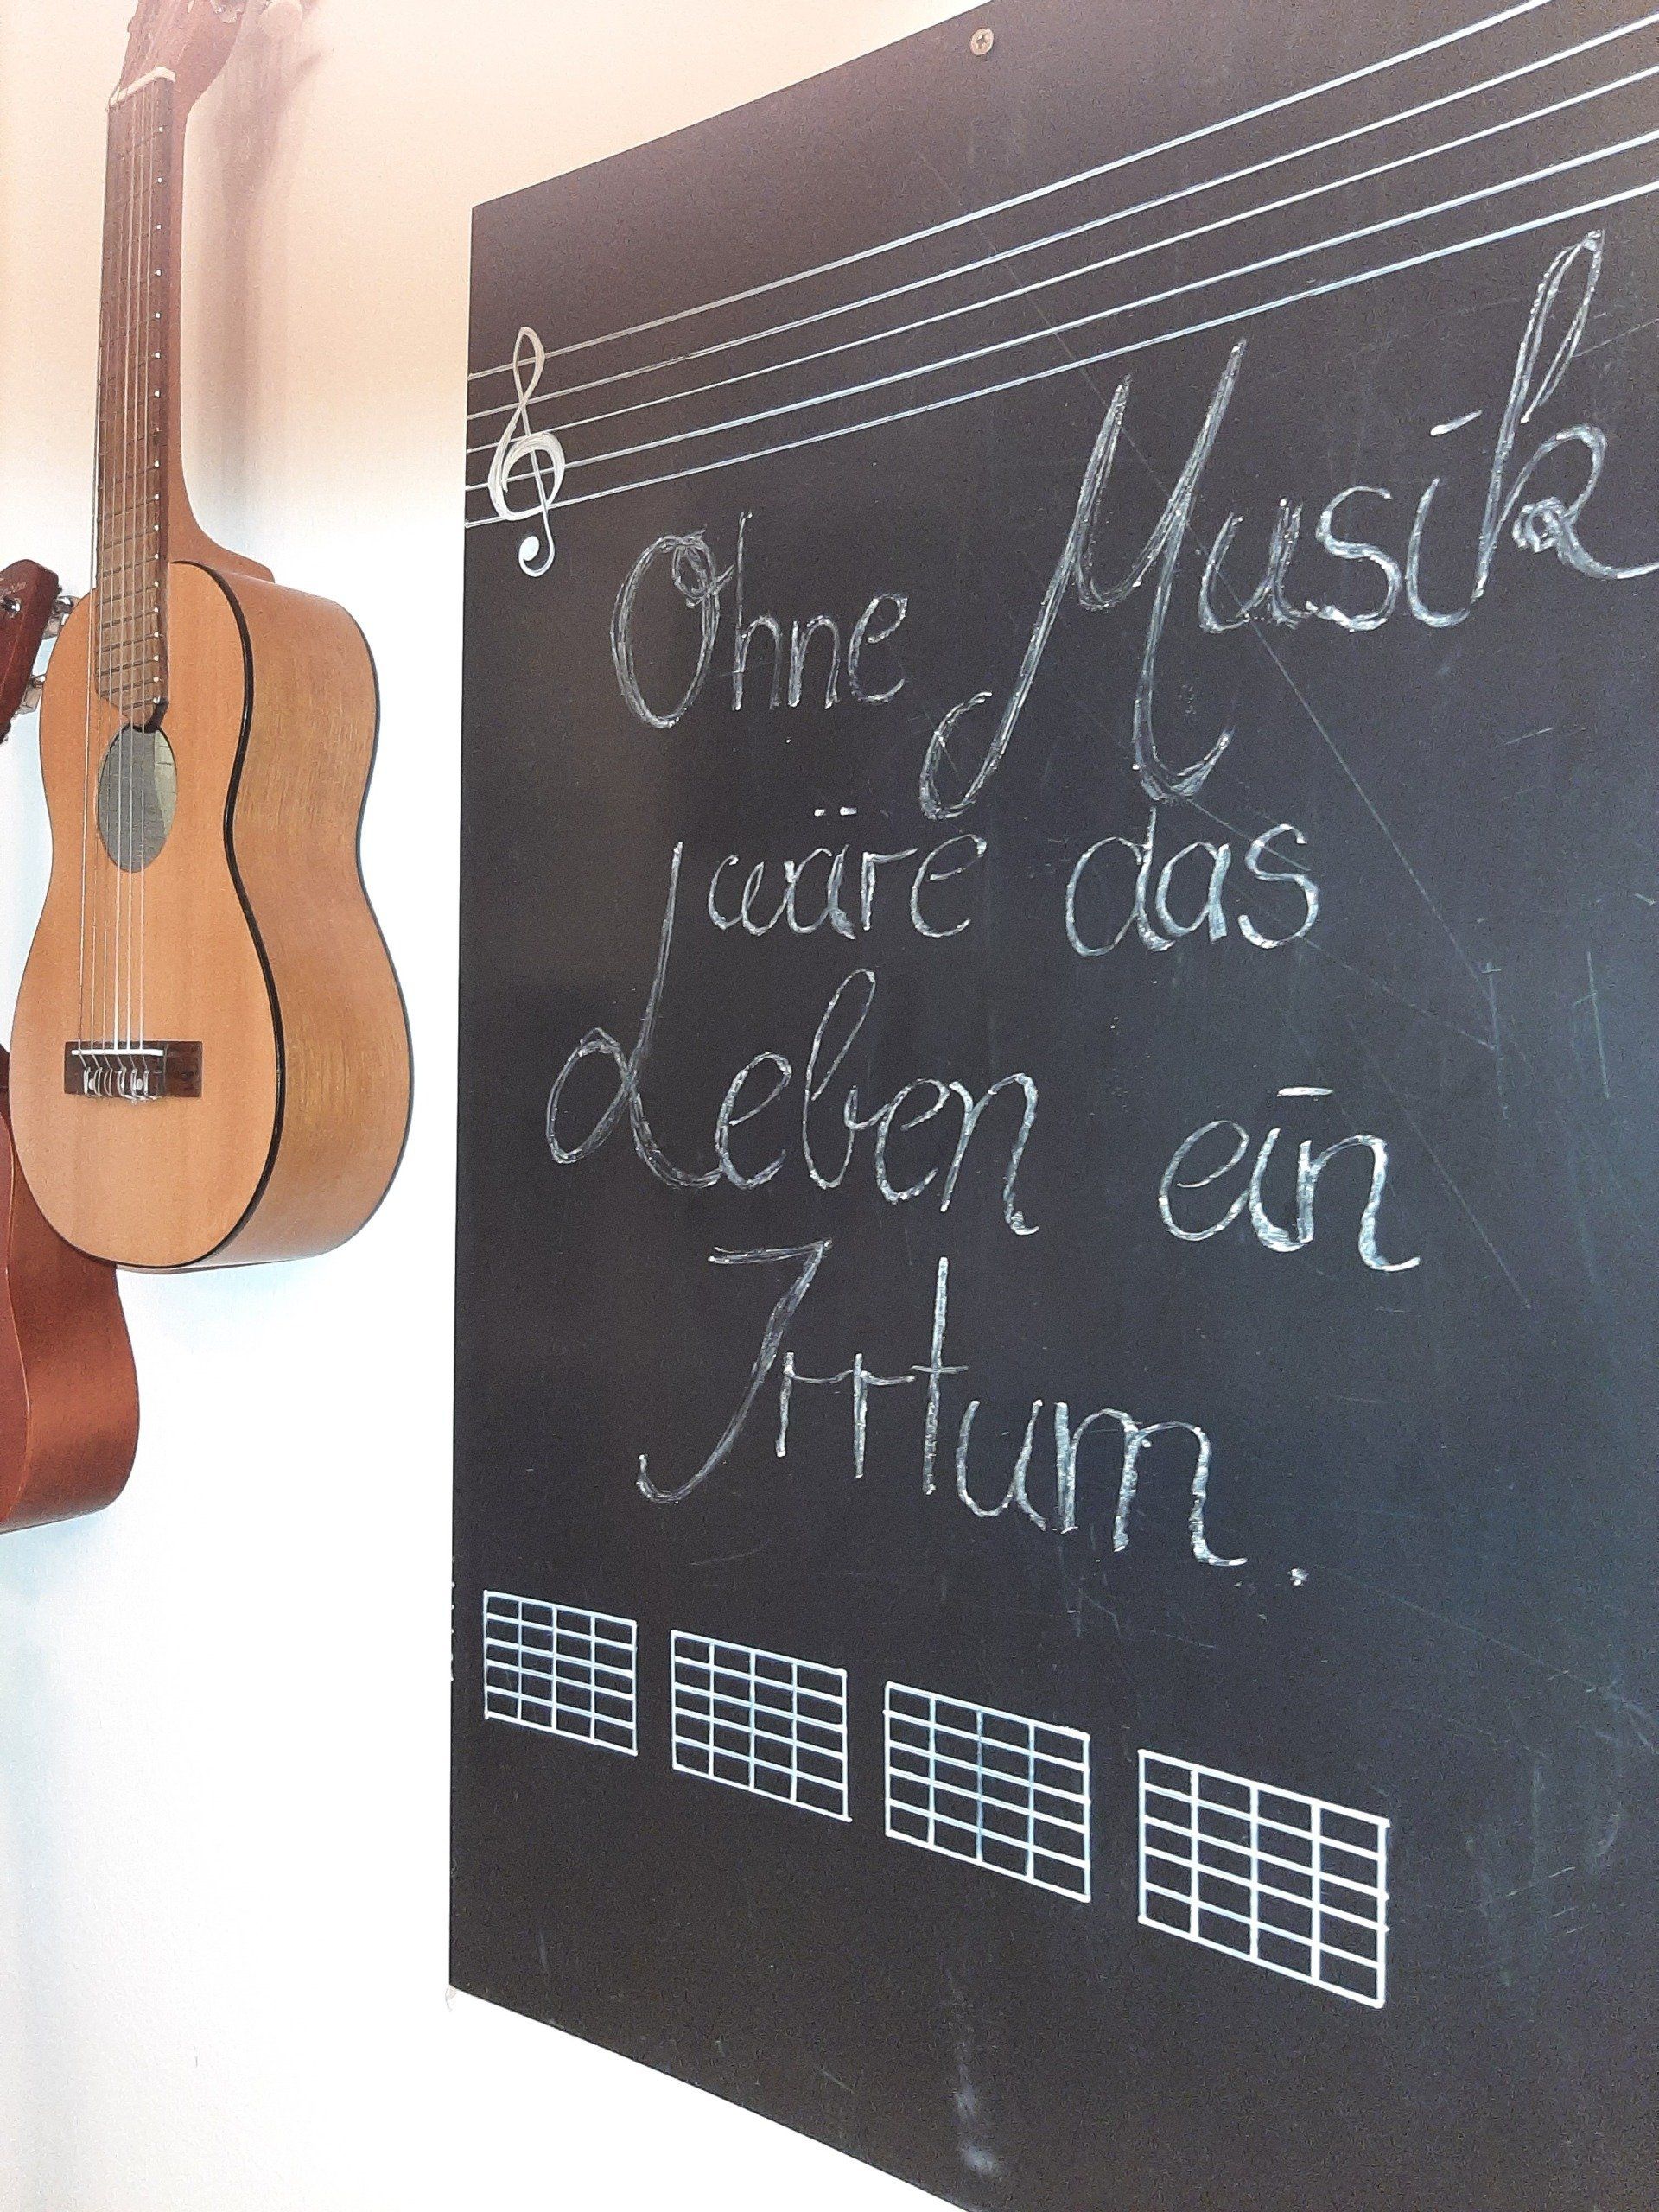 Ohne Musik
wäre das
Leben ein
Irrtum.